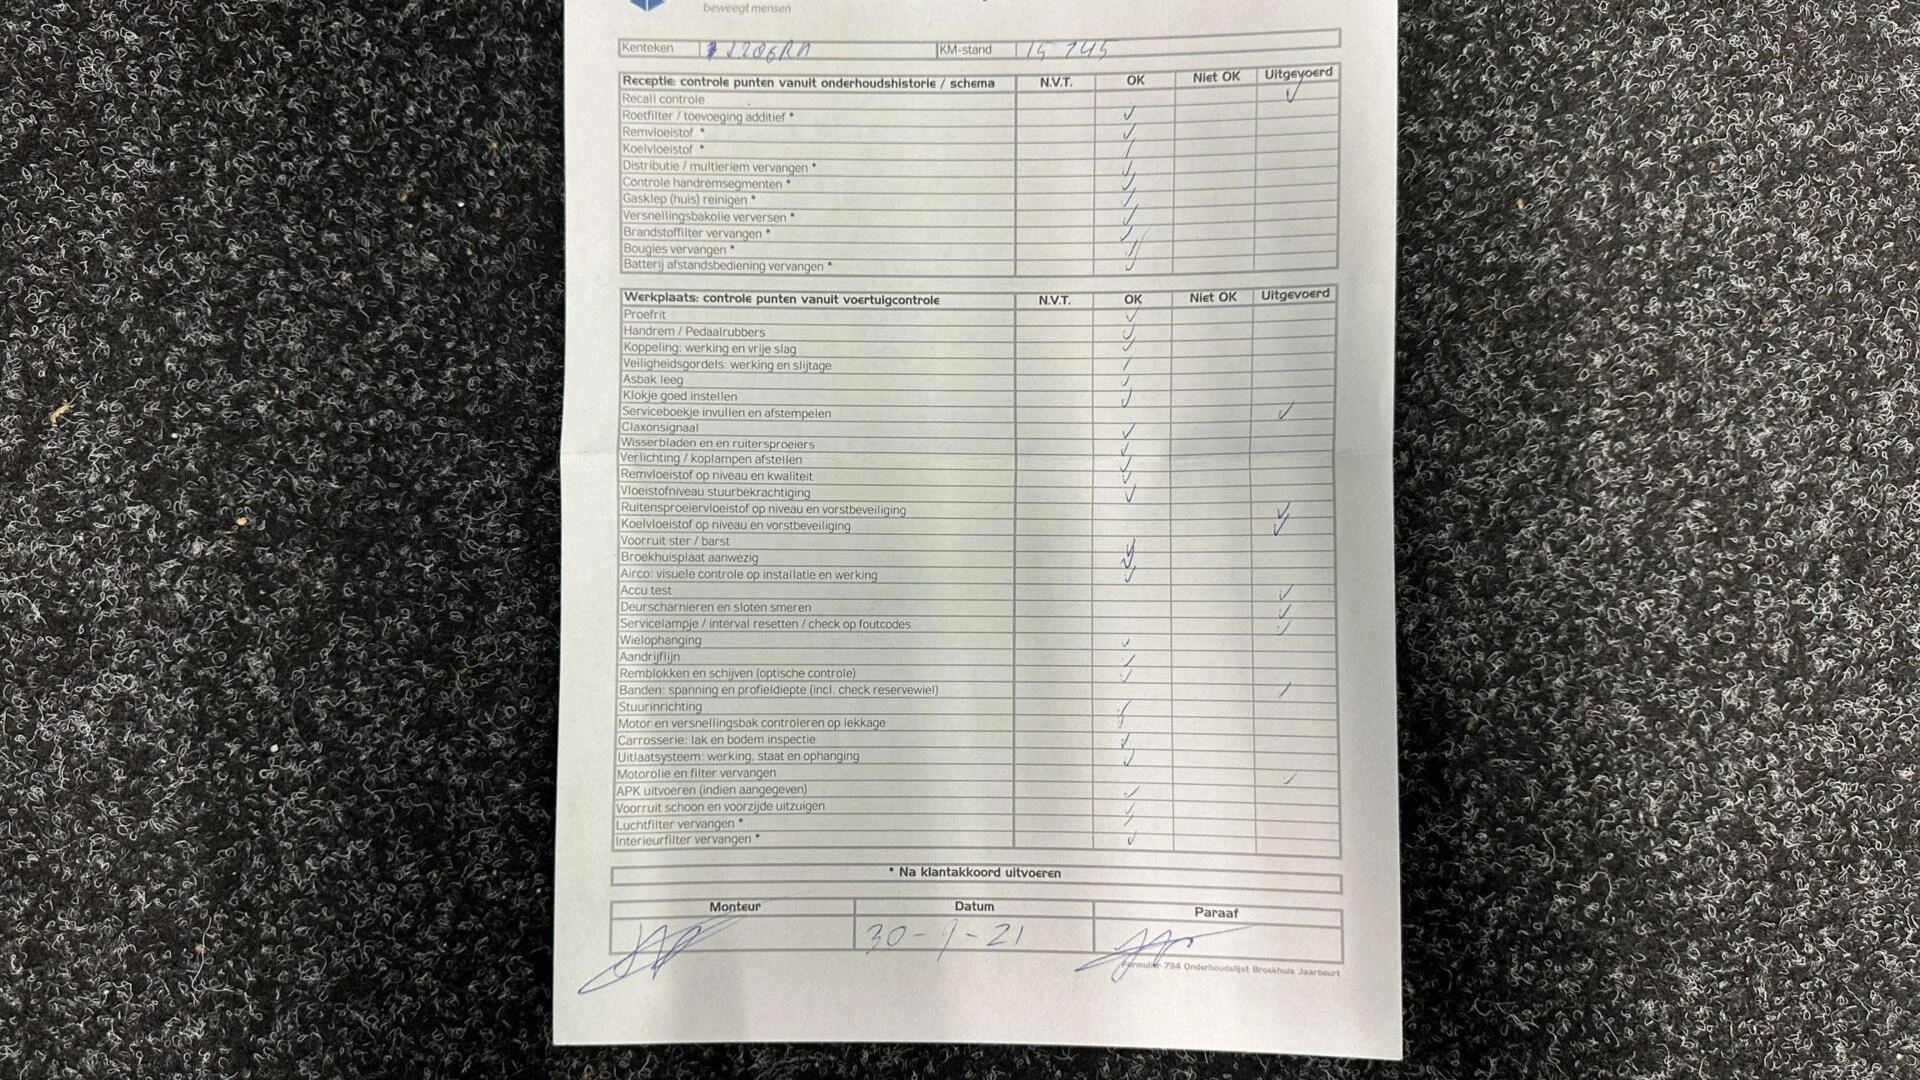 beweegt mensen
Kenteken KM-stand 15 745
Receptie: controle punten vanuit onderhoudshistorie / schema N.V.T. OK Niet OK Uitgevoerd
Recall controle
Roetfilter / toevoeging additief *
Remvloeistof *
Koelvloeistof *
Distributie / multieriem vervangen *
Controle handremsegmenten *
Gasklep (huis) reinigen *
Versnellingsbakolie verversen *
Brandstoffilter vervangen *
Bougies vervangen *
Batterij afstandsbediening vervangen *
Werkplaats: controle punten vanuit voertuigcontrole N.V.T. OK Niet OK Uitgevoerd
Proefrit
Handrem / Pedaalrubbers
Koppeling: werking en vrije slag
Veiligheidsgordels: werking en slijtage
Asbak leeg
Klokje goed instellen
Serviceboekje invullen en afstempelen
Claxonsignaal
Wisserbladen en en ruitersproeiers
Verlichting / koplampen afstellen
Remvloeistof op niveau en kwaliteit
Vloeistofniveau stuurbekrachtiging
Ruitensproeiervloeistof op niveau en vorstbeveiliging
Koelvloeistof op niveau en vorstbeveiliging
Voorruit ster / barst
Broekhuisplaat aanwezig
Airco: visuele controle op installatie en werking
Accu test
Deurscharnieren en sloten smeren
Servicelampje / interval resetten / check op foutcodes
Wielophanging
Aandrijflijn
Remblokken en schijven (optische controle)
Banden: spanning en profieldiepte (incl. check reservewiel)
Stuurinrichting
Motor en versnellingsbak controleren op lekkage
Carrosserie: lak en bodem inspectie
Uitlaatsysteem: werking, staat en ophanging
Motorolie en filter vervangen
APK uitvoeren (indien aangegeven)
Voorruit schoon en voorzijde uitzuigen
Luchtfilter vervangen *
Interieurfilter vervangen *
* Na klantakkoord uitvoeren
Monteur Datum Paraaf
30-9-21
Formulier 734 Onderhoudslijst Broekhuis Jaarbeurt